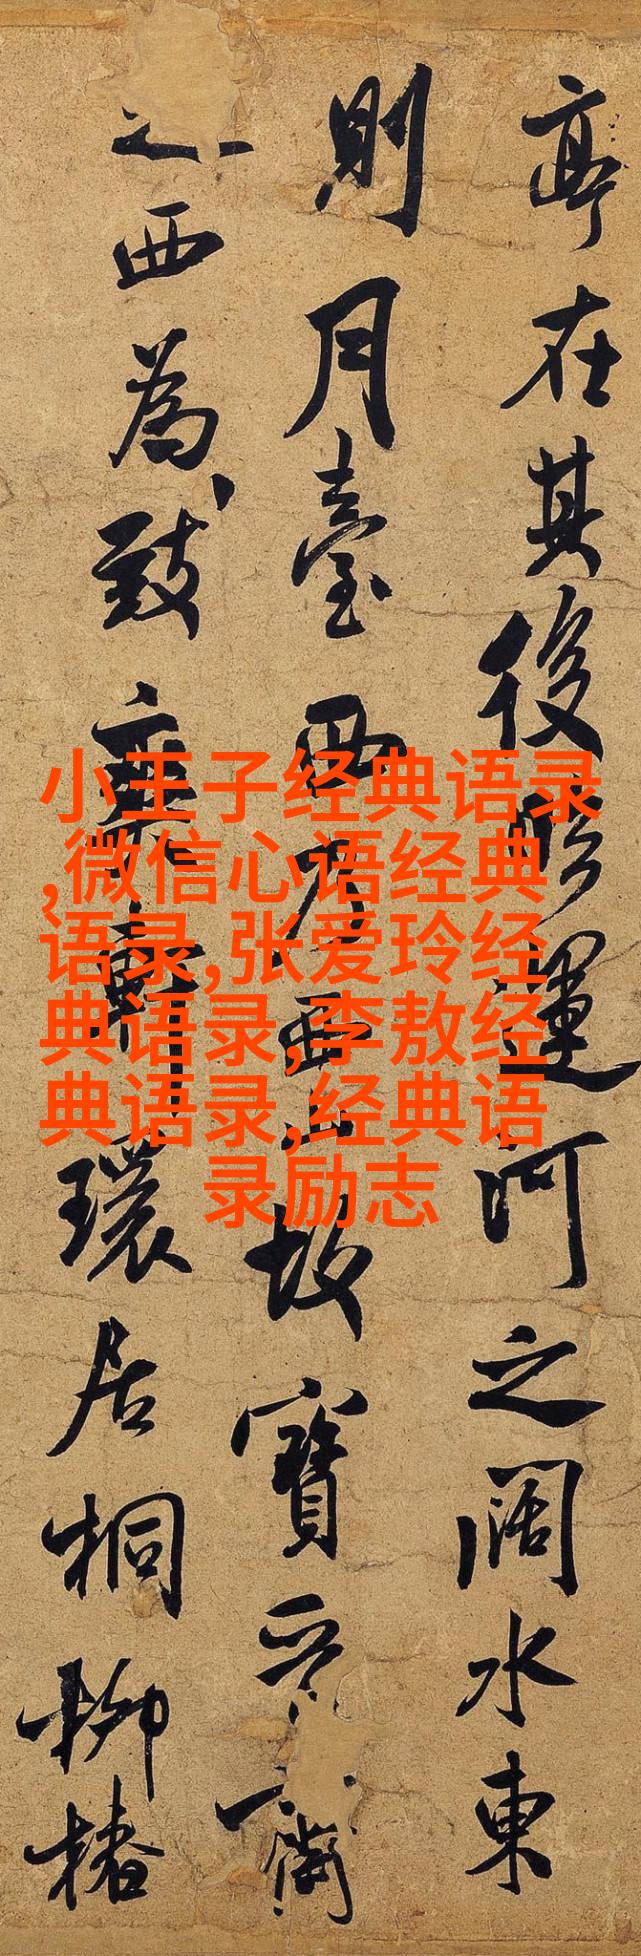 亭在其後臨運河之闊水東
則月臺西乃西山故寶晉齋
之西為致爽軒環居桐柳椿
小王子经典语录
,微信心语经典
语录,张爱玲经
典语录,李敖经
典语录,经典语
录励志